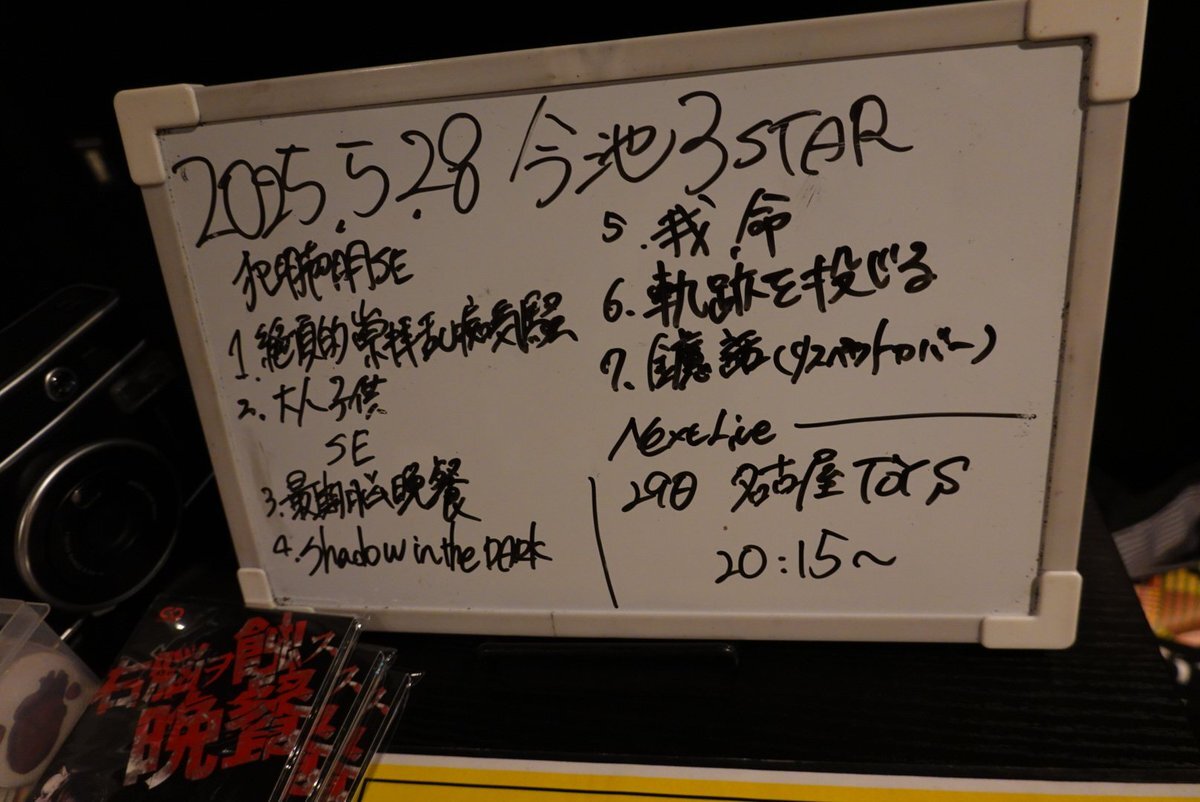 2025.5.28 今池3STAR
SE
1.絶頂的崇拝乱痴気騒
2.大人子供
SE
3.最期脳晩餐
4.Shadow in the DARK
5.我、命
6.軌跡を投じる
7.話(カバー)
Next Live
29日 名古屋
20:15〜
右脳ヲ蝕ス
晩餐